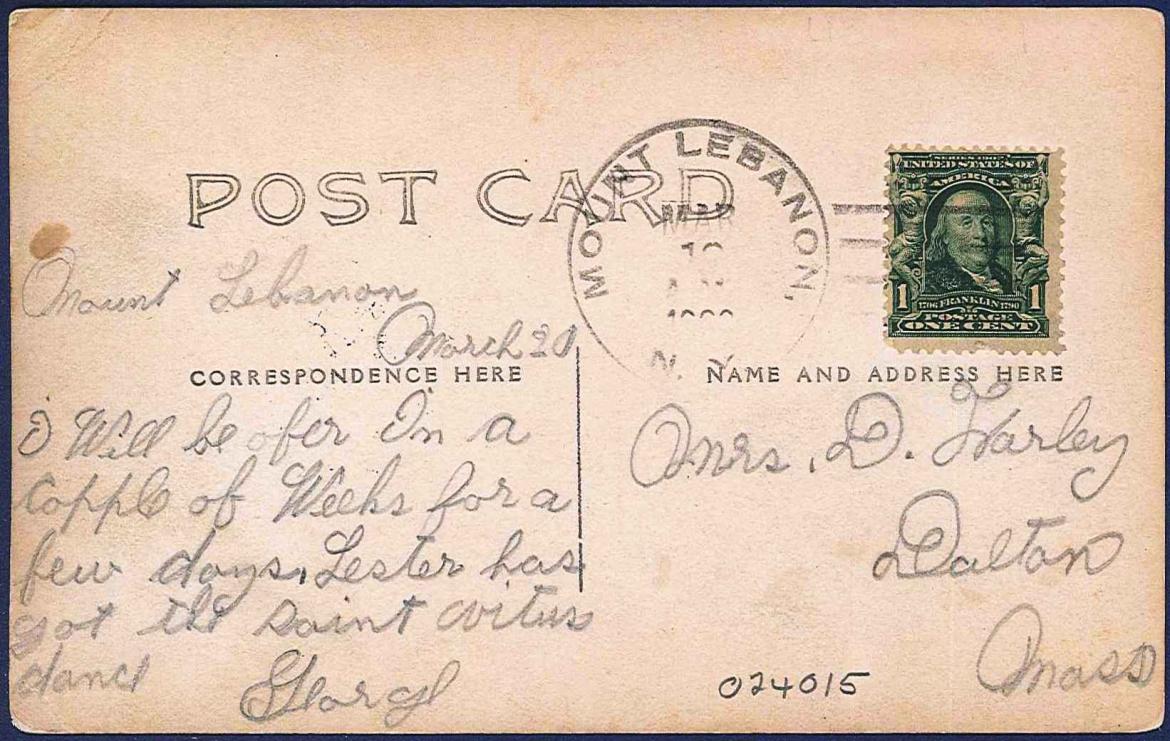 POST CARD
MOUNT LEBANON,
MAR
N. Y.
SERIES 1902
UNITED STATES OF
AMERICA
1 1706 FRANKLIN 1790 1
POSTAGE
ONE CENT
Mount Lebanon
March 20
CORRESPONDENCE HERE
I Will be ofer In a
copple of Weeks for a
few days, Lester has
got the Saint vitus
dance
George
NAME AND ADDRESS HERE
Mrs. D. Farley
Dalton
Mass
024015